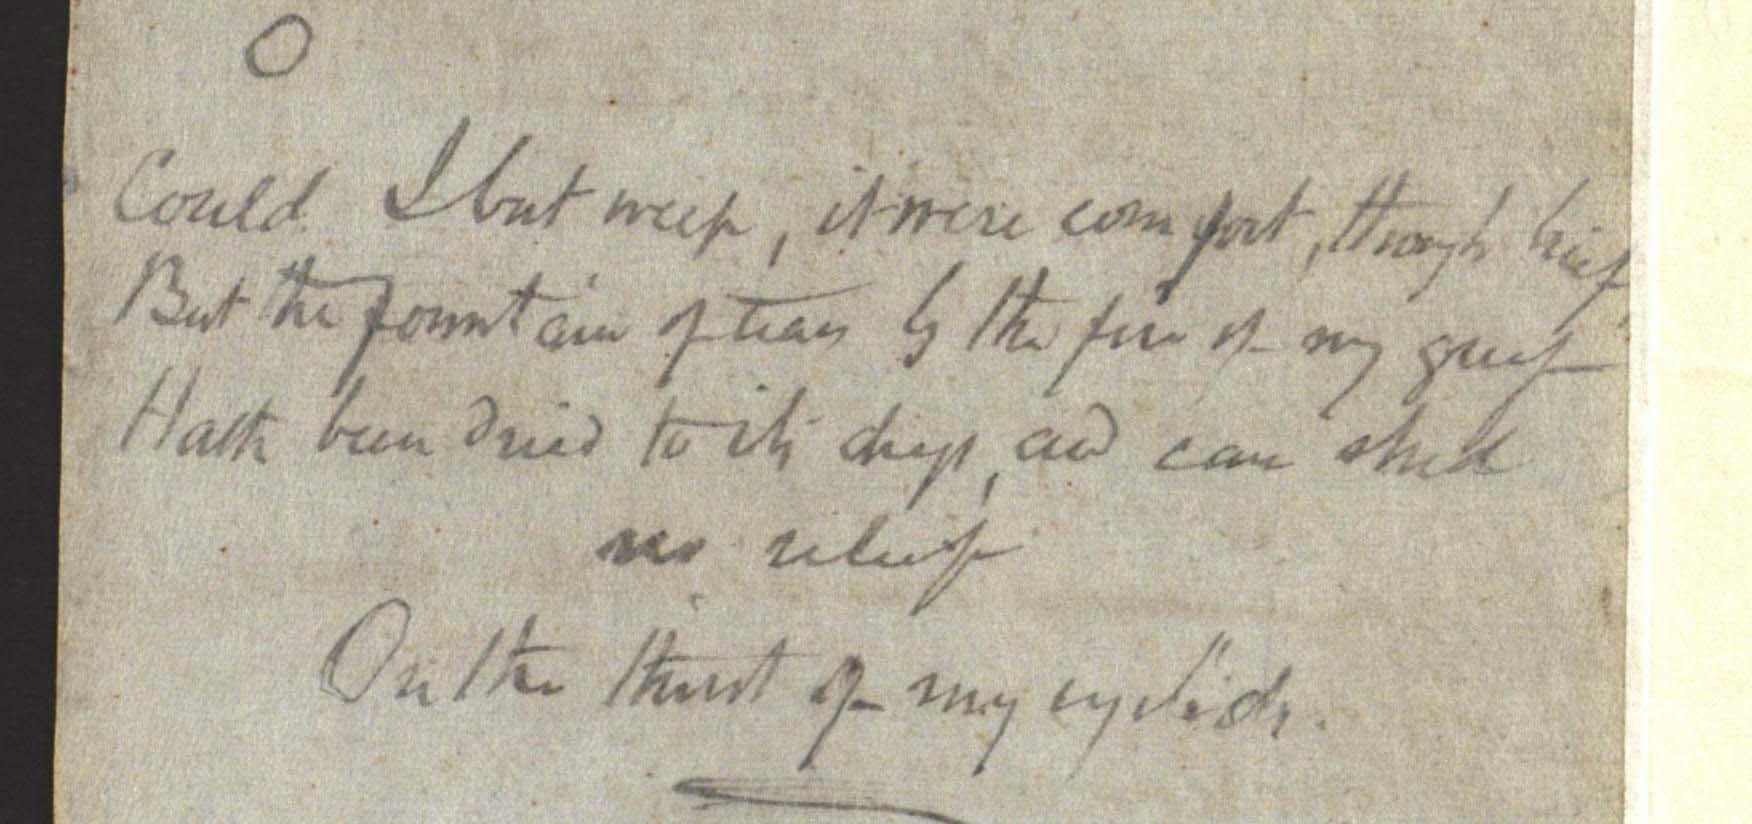 O
Could I but weep, it were comfort, though brief
But the fountain of tears by the fire of my grief
Hath been dried to its dregs, and can shed
no relief
On the thirst of my eyelids.